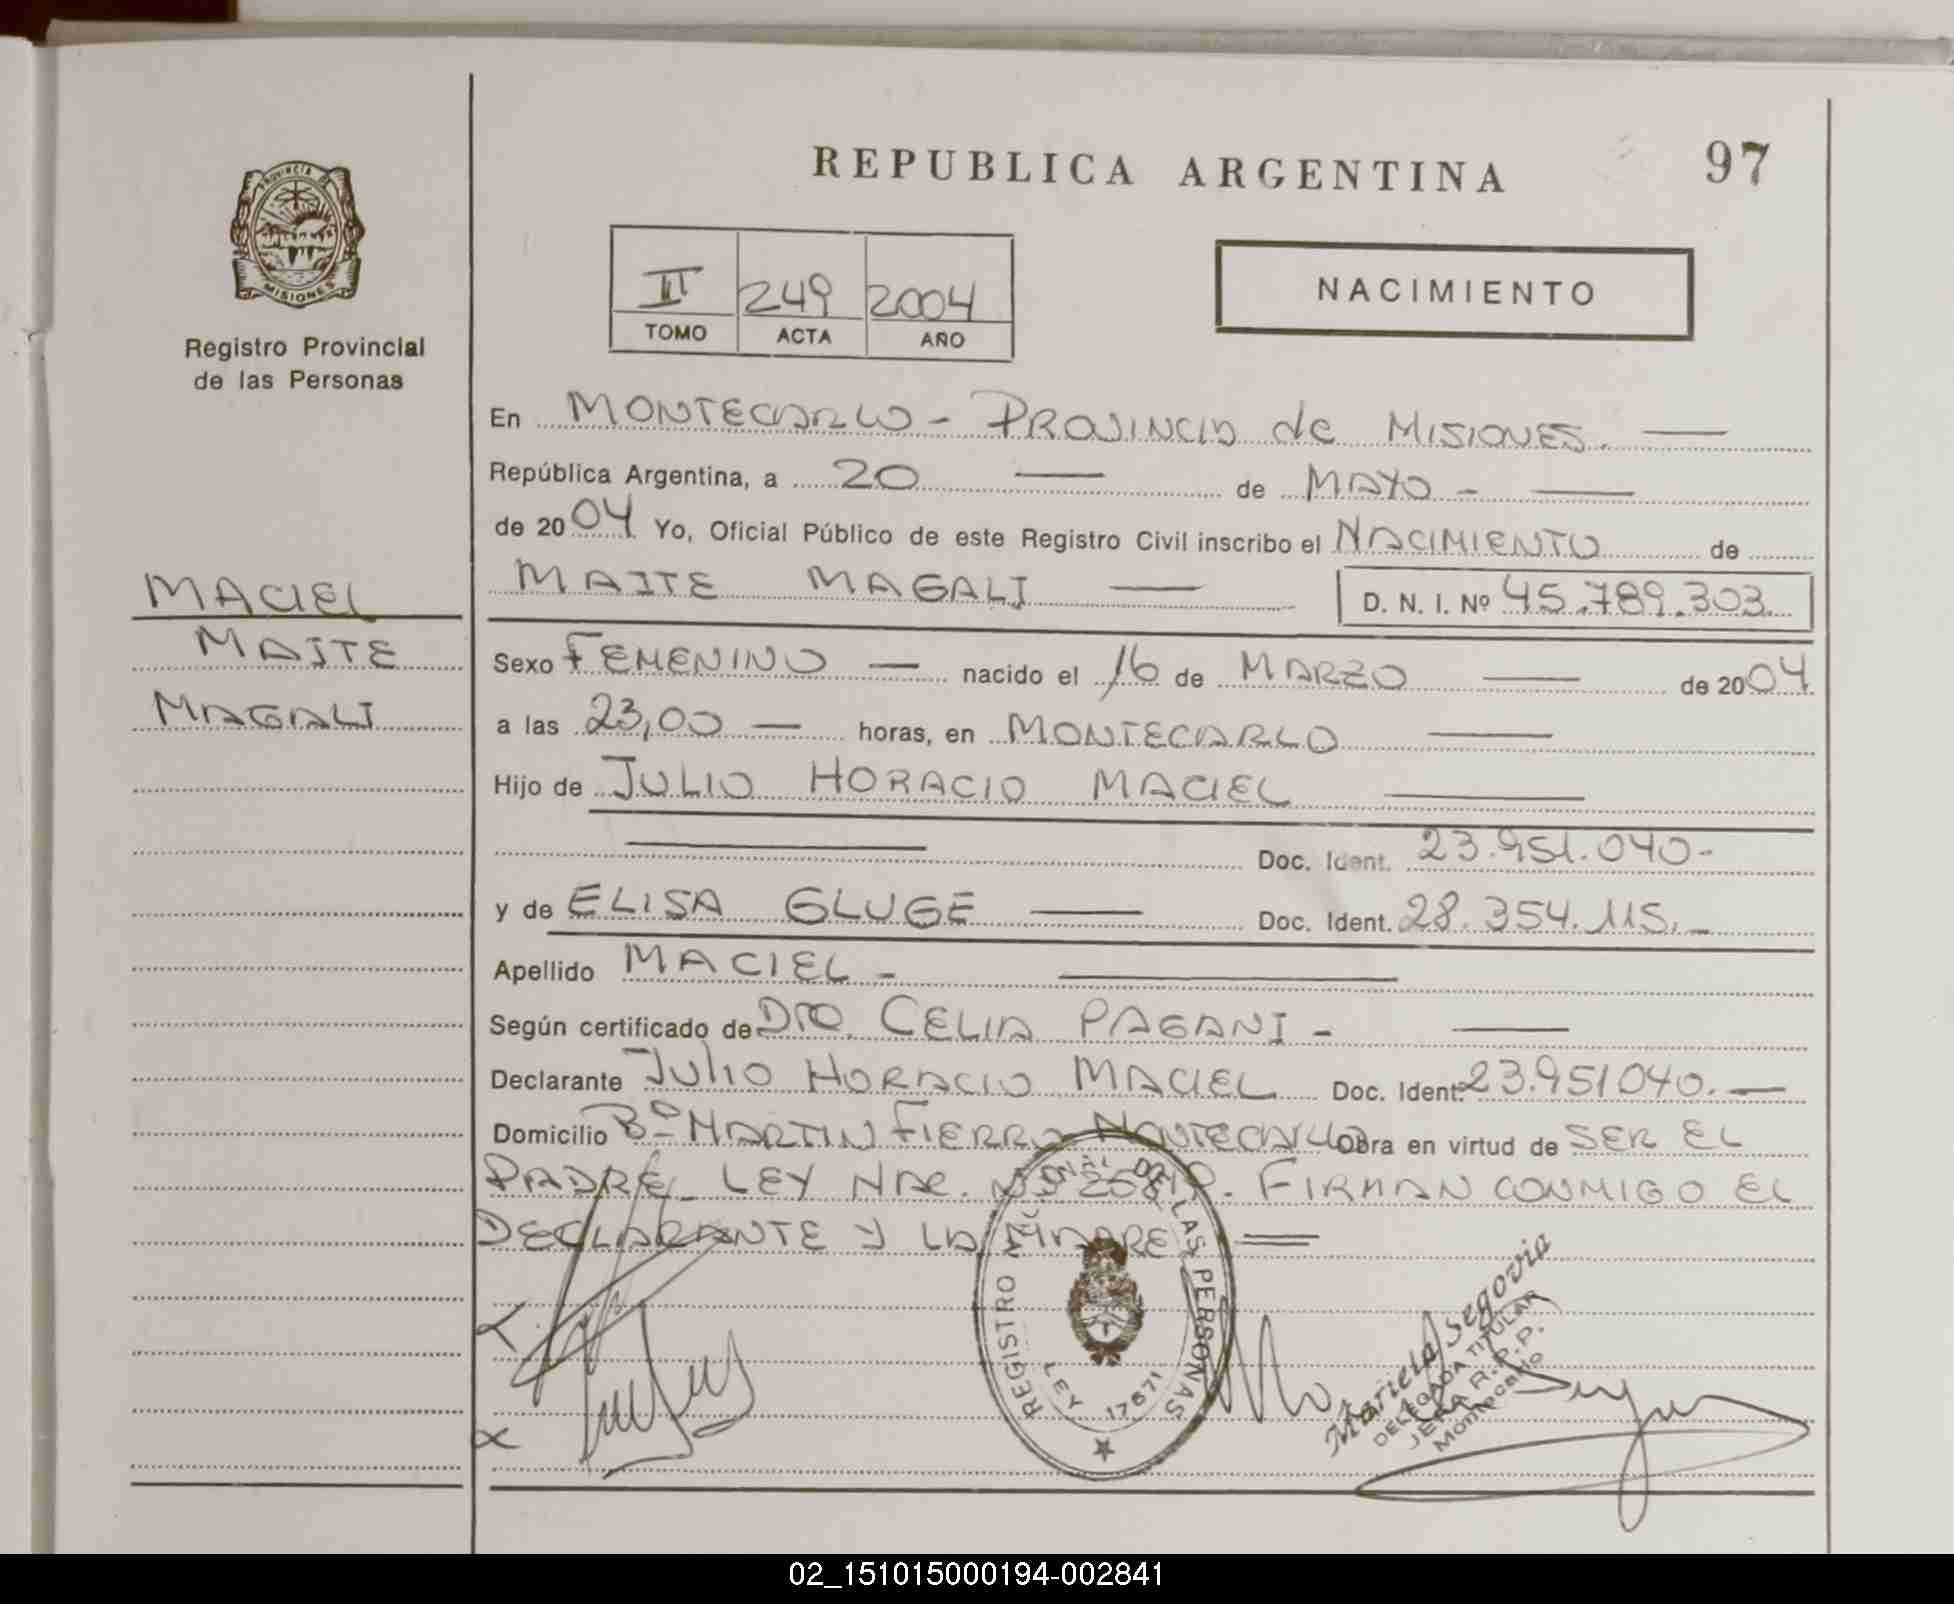 REPUBLICA ARGENTINA
97
PROVINCIA DE
MISIONES
Registro Provincial
de las Personas
II 249 2004
TOMO ACTA AÑO
NACIMIENTO
En MONTECARLO - PROVINCIA de MISIONES.
República Argentina, a 20 de MAYO -
de 2004 Yo, Oficial Público de este Registro Civil inscribo el NACIMIENTO de
MAITE MAGALI D. N. I. Nº 45.789.303
MACIEL
MAITE
MAGALI
Sexo FEMENINO nacido el 16 de MARZO de 2004
a las 23,00 horas, en MONTECARLO
Hijo de JULIO HORACIO MACIEL
Doc. Ident. 23.951.040-
y de ELISA GLUGE Doc. Ident. 28.354.115.-
Apellido MACIEL -
Según certificado de Dra. CELIA PAGANI -
Declarante JULIO HORACIO MACIEL Doc. Ident. 23.951040.-
Domicilio Bº MARTIN FIERRO MONTECARLO Obra en virtud de SER EL
PADRE. LEY Nac. Nº FIRMAN CONMIGO EL
DECLARANTE Y LA MADRE
REGISTRO DE LAS PERSONAS
LEY 17671
Mariela Segovia
DELEGADA TITULAR
R.P.P.
Montecarlo
02_151015000194-002841